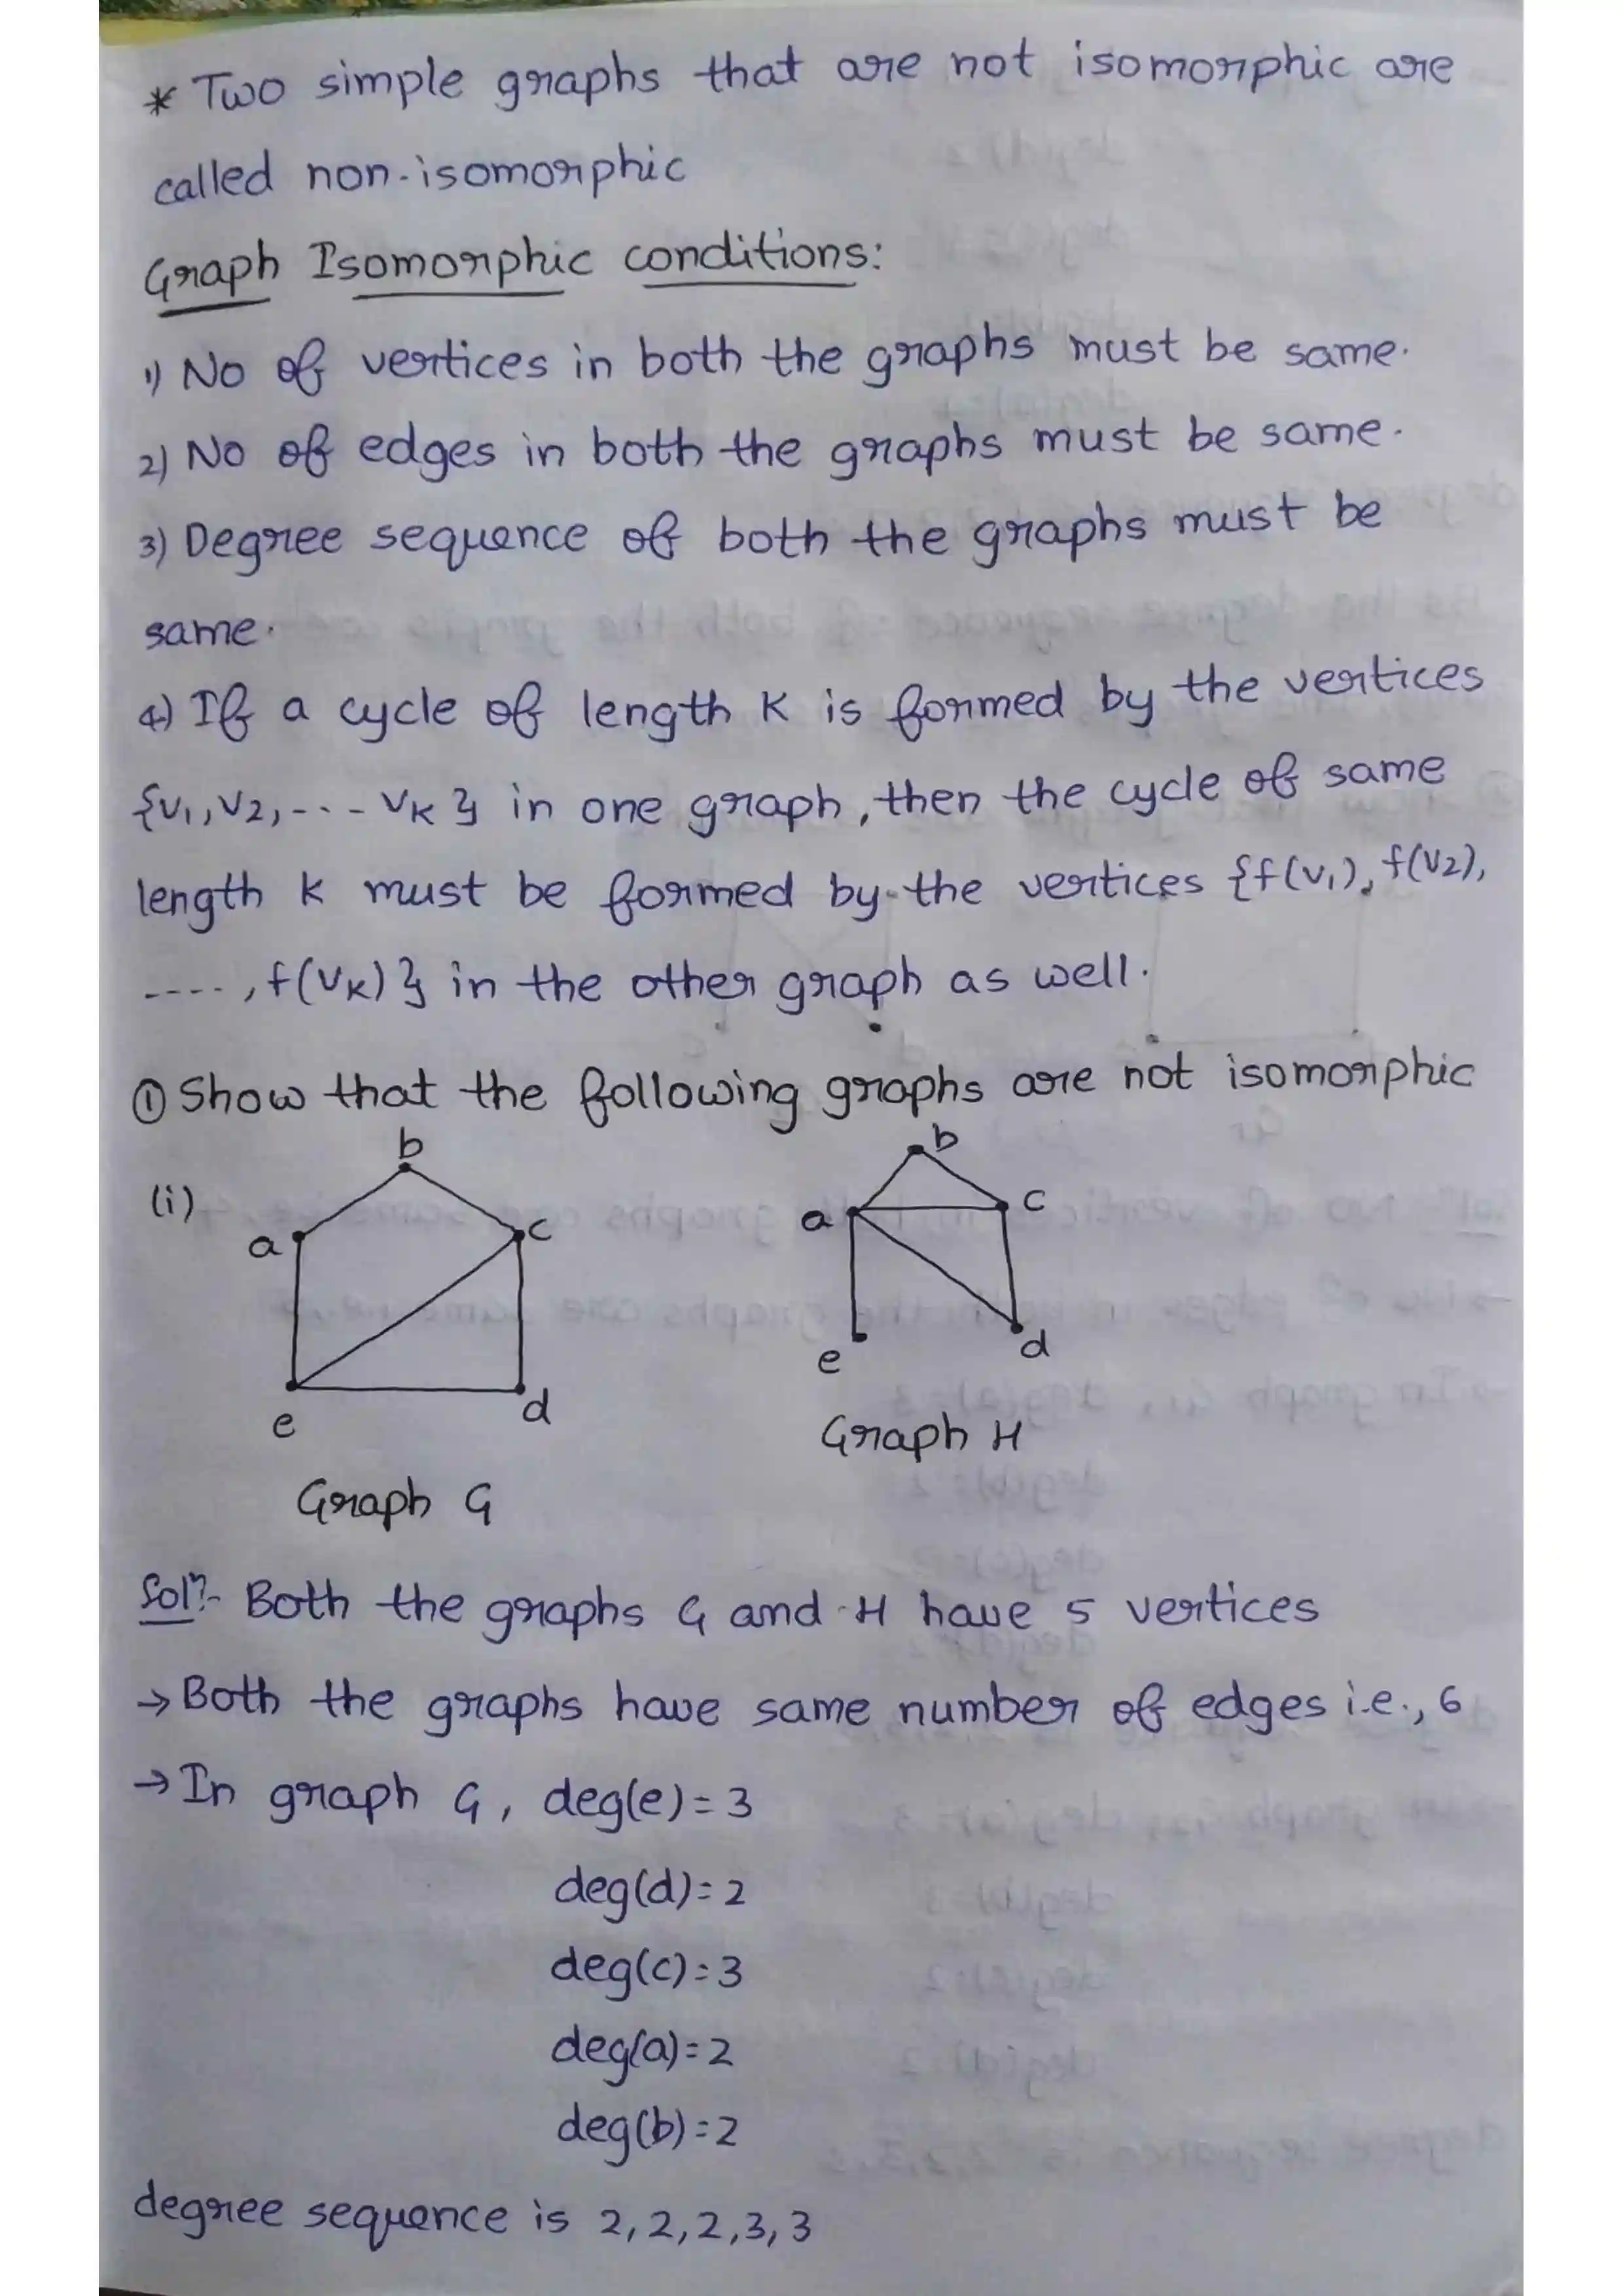 * Two simple graphs that are not isomorphic are
called non-isomorphic
Graph Isomorphic conditions:
1) No of vertices in both the graphs must be same.
2) No of edges in both the graphs must be same.
3) Degree sequence of both the graphs must be
same.
4) If a cycle of length K is formed by the vertices
{v1, v2, --- vK} in one graph, then the cycle of same
length K must be formed by the vertices {f(v1), f(v2),
----, f(vK)} in the other graph as well.
① Show that the following graphs are not isomorphic
(i)
b
a
c
e
d
Graph G
b
a
c
e
d
Graph H
Solⁿ:- Both the graphs G and H have 5 vertices
→ Both the graphs have same number of edges i.e., 6
→ In graph G, deg(e) = 3
deg(d) = 2
deg(c) = 3
deg(a) = 2
deg(b) = 2
degree sequence is 2, 2, 2, 3, 3